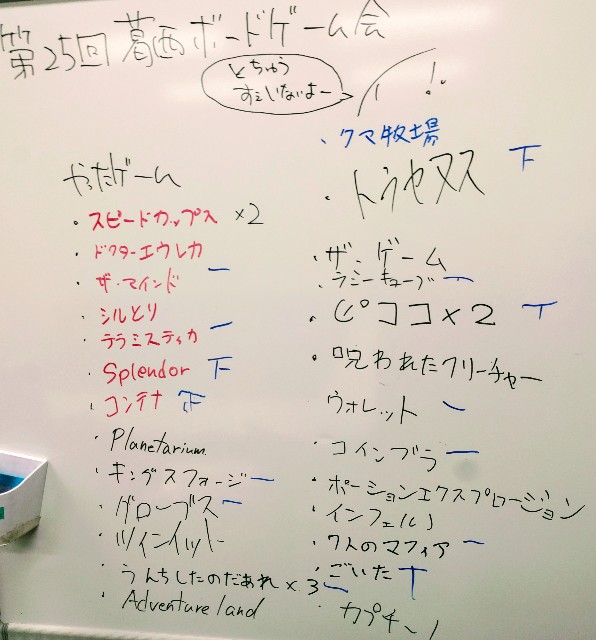 第25回 葛西ボードゲーム会
とちゅう
すぇいないよー
やったゲーム
・スピードカップス ×2
・ドクターエウレカ
・ザ・マインド 一
・シルとり
・テラミスティカ 一
・Splendor 下
・コンテナ 正
・Planetarium
・キングスフォージ 一
・グローブス 一
・ツインイット
・うんちしたのだあれ×3 一
・Adventure land
・クマ牧場
・トラセヌス 下
・ザ・ゲーム
・ラミーキューブ 一
・ピココ×2 丁
・呪われたクリーチャー
ウォレット 一
・コインブラ 一
・ポーションエクスプロージョン
・インフェルノ
・7人のマフィア 一
・ごいた 丁
・カプチーノ